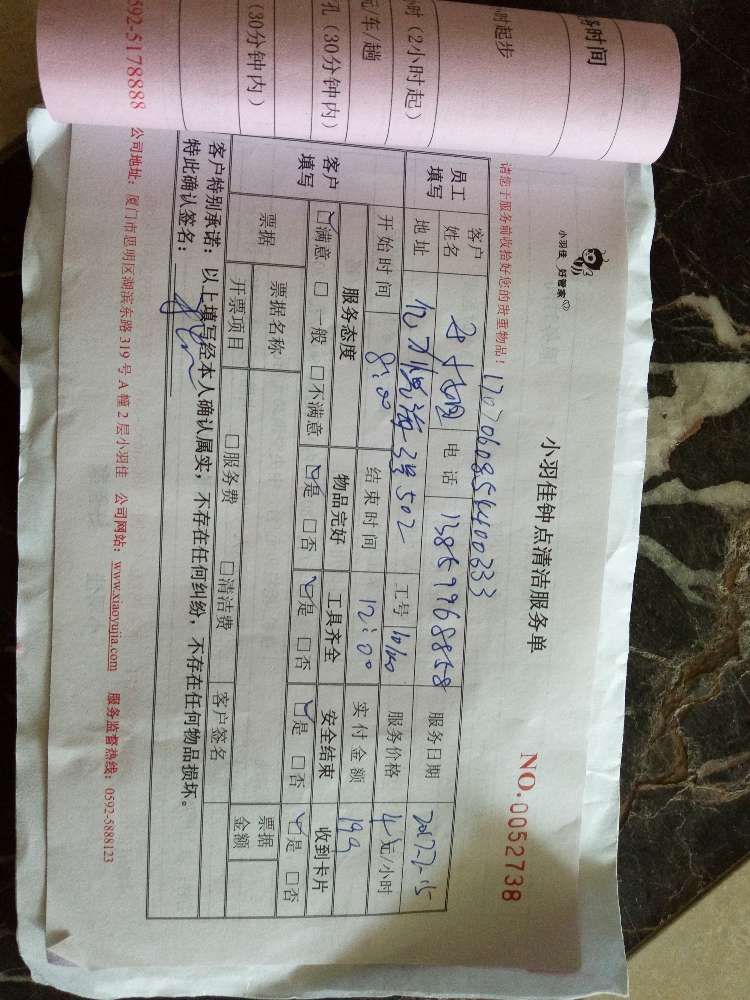 小羽佳 好管家
小羽佳钟点清洁服务单
NO.0052738
请您于服务前收拾好您的贵重物品!
员工填写
客户姓名
电话 13859968858
服务日期
地址
3号502
工号
服务价格
元/小时
开始时间 8:00
结束时间 12:00
实付金额 199
客户填写
服务态度 物品完好 工具齐全 安全结束 收到卡片
☑满意 □一般 □不满意 ☑是 □否 ☑是 □否 ☑是 □否 ☑是 □否
票据
票据名称
票据金额
开票项目 □服务费 □清洁费
客户签名
客户特别承诺:以上填写经本人确认属实,不存在任何纠纷,不存在任何物品损坏。
特此确认签名:
公司地址:厦门市思明区湖滨东路319号A幢2层小羽佳 公司网站:www.xiaoyujia.com 服务监督热线:0592-5888123
务时间
时起步
时(2小时起)
元/车/趟
孔(30分钟内)
(30分钟内)
592-5178888